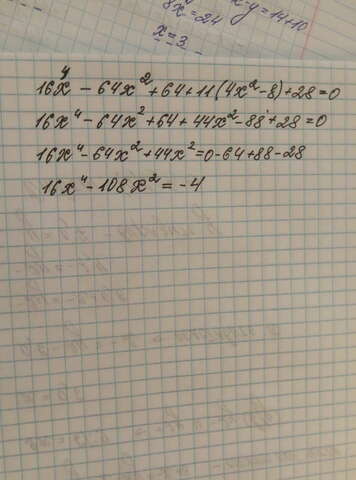 8x = 24
x - y = 14 + 10
x = 3
16x⁴ - 64x² + 64 + 11(4x² - 8) + 28 = 0
16x⁴ - 64x² + 64 + 44x² - 88 + 28 = 0
16x⁴ - 64x² + 44x² = 0 - 64 + 88 - 28
16x⁴ - 108x² = -4